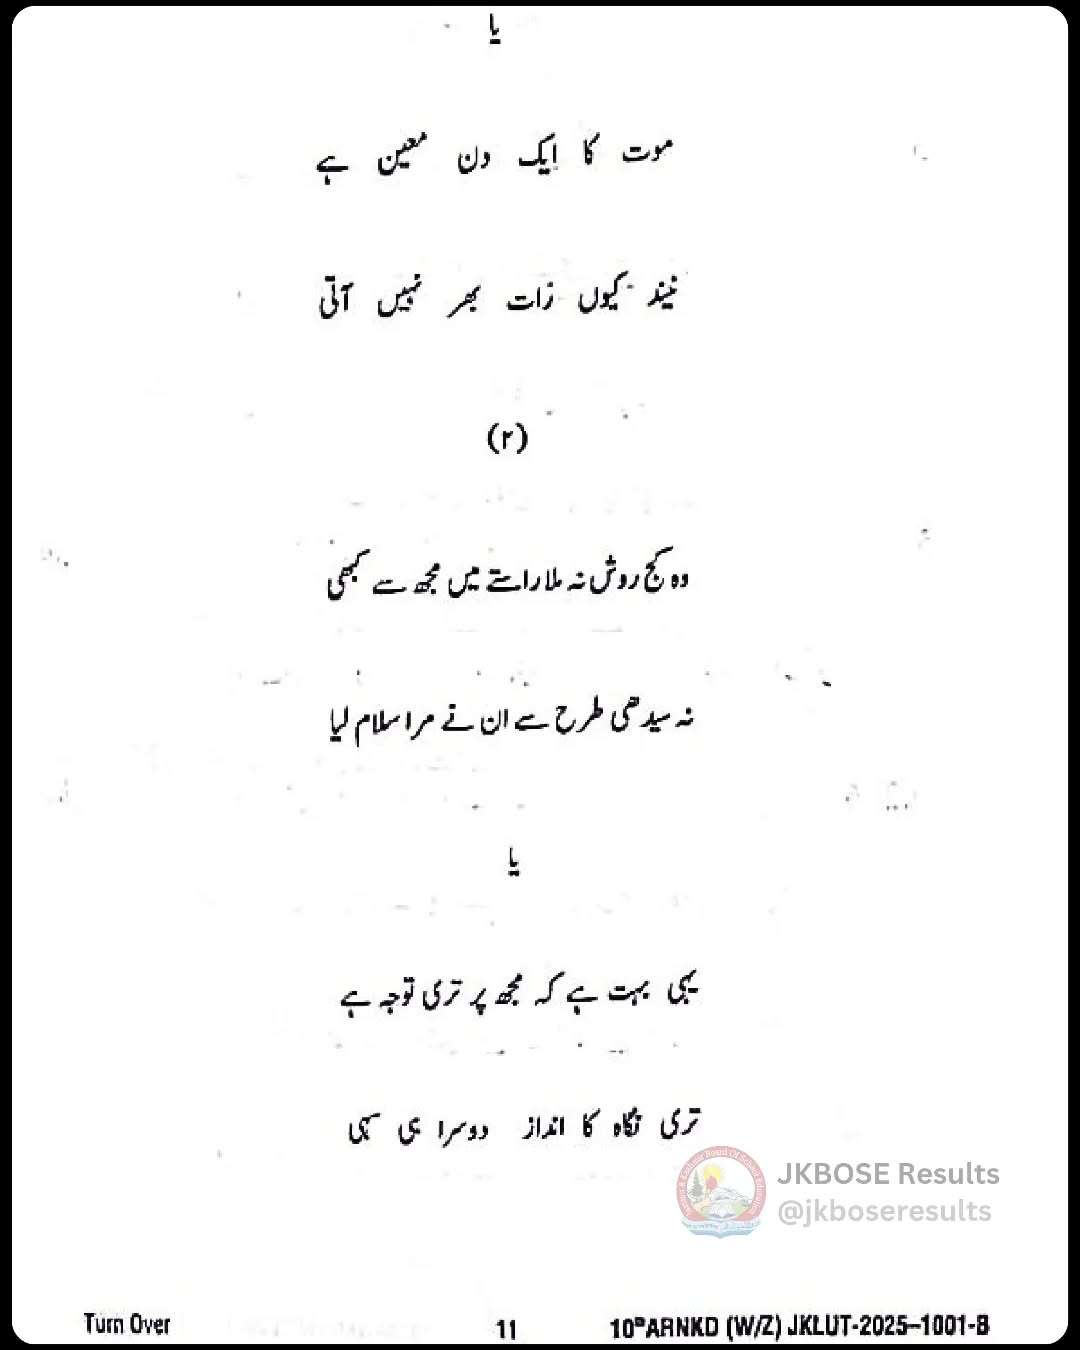 یا
موت کا ایک دن معین ہے
نیند کیوں رات بھر نہیں آتی
(۲)
وہ کج روش نہ ملا راستے میں مجھ سے کبھی
نہ سیدھی طرح سے ان نے مرا سلام لیا
یا
یہی بہت ہے کہ مجھ پر تری توجہ ہے
تری نگاہ کا انداز دوسرا ہی سہی
JKBOSE Results
@jkboseresults
Turn Over
11
10thARNKD (W/Z) JKLUT-2025–1001-B